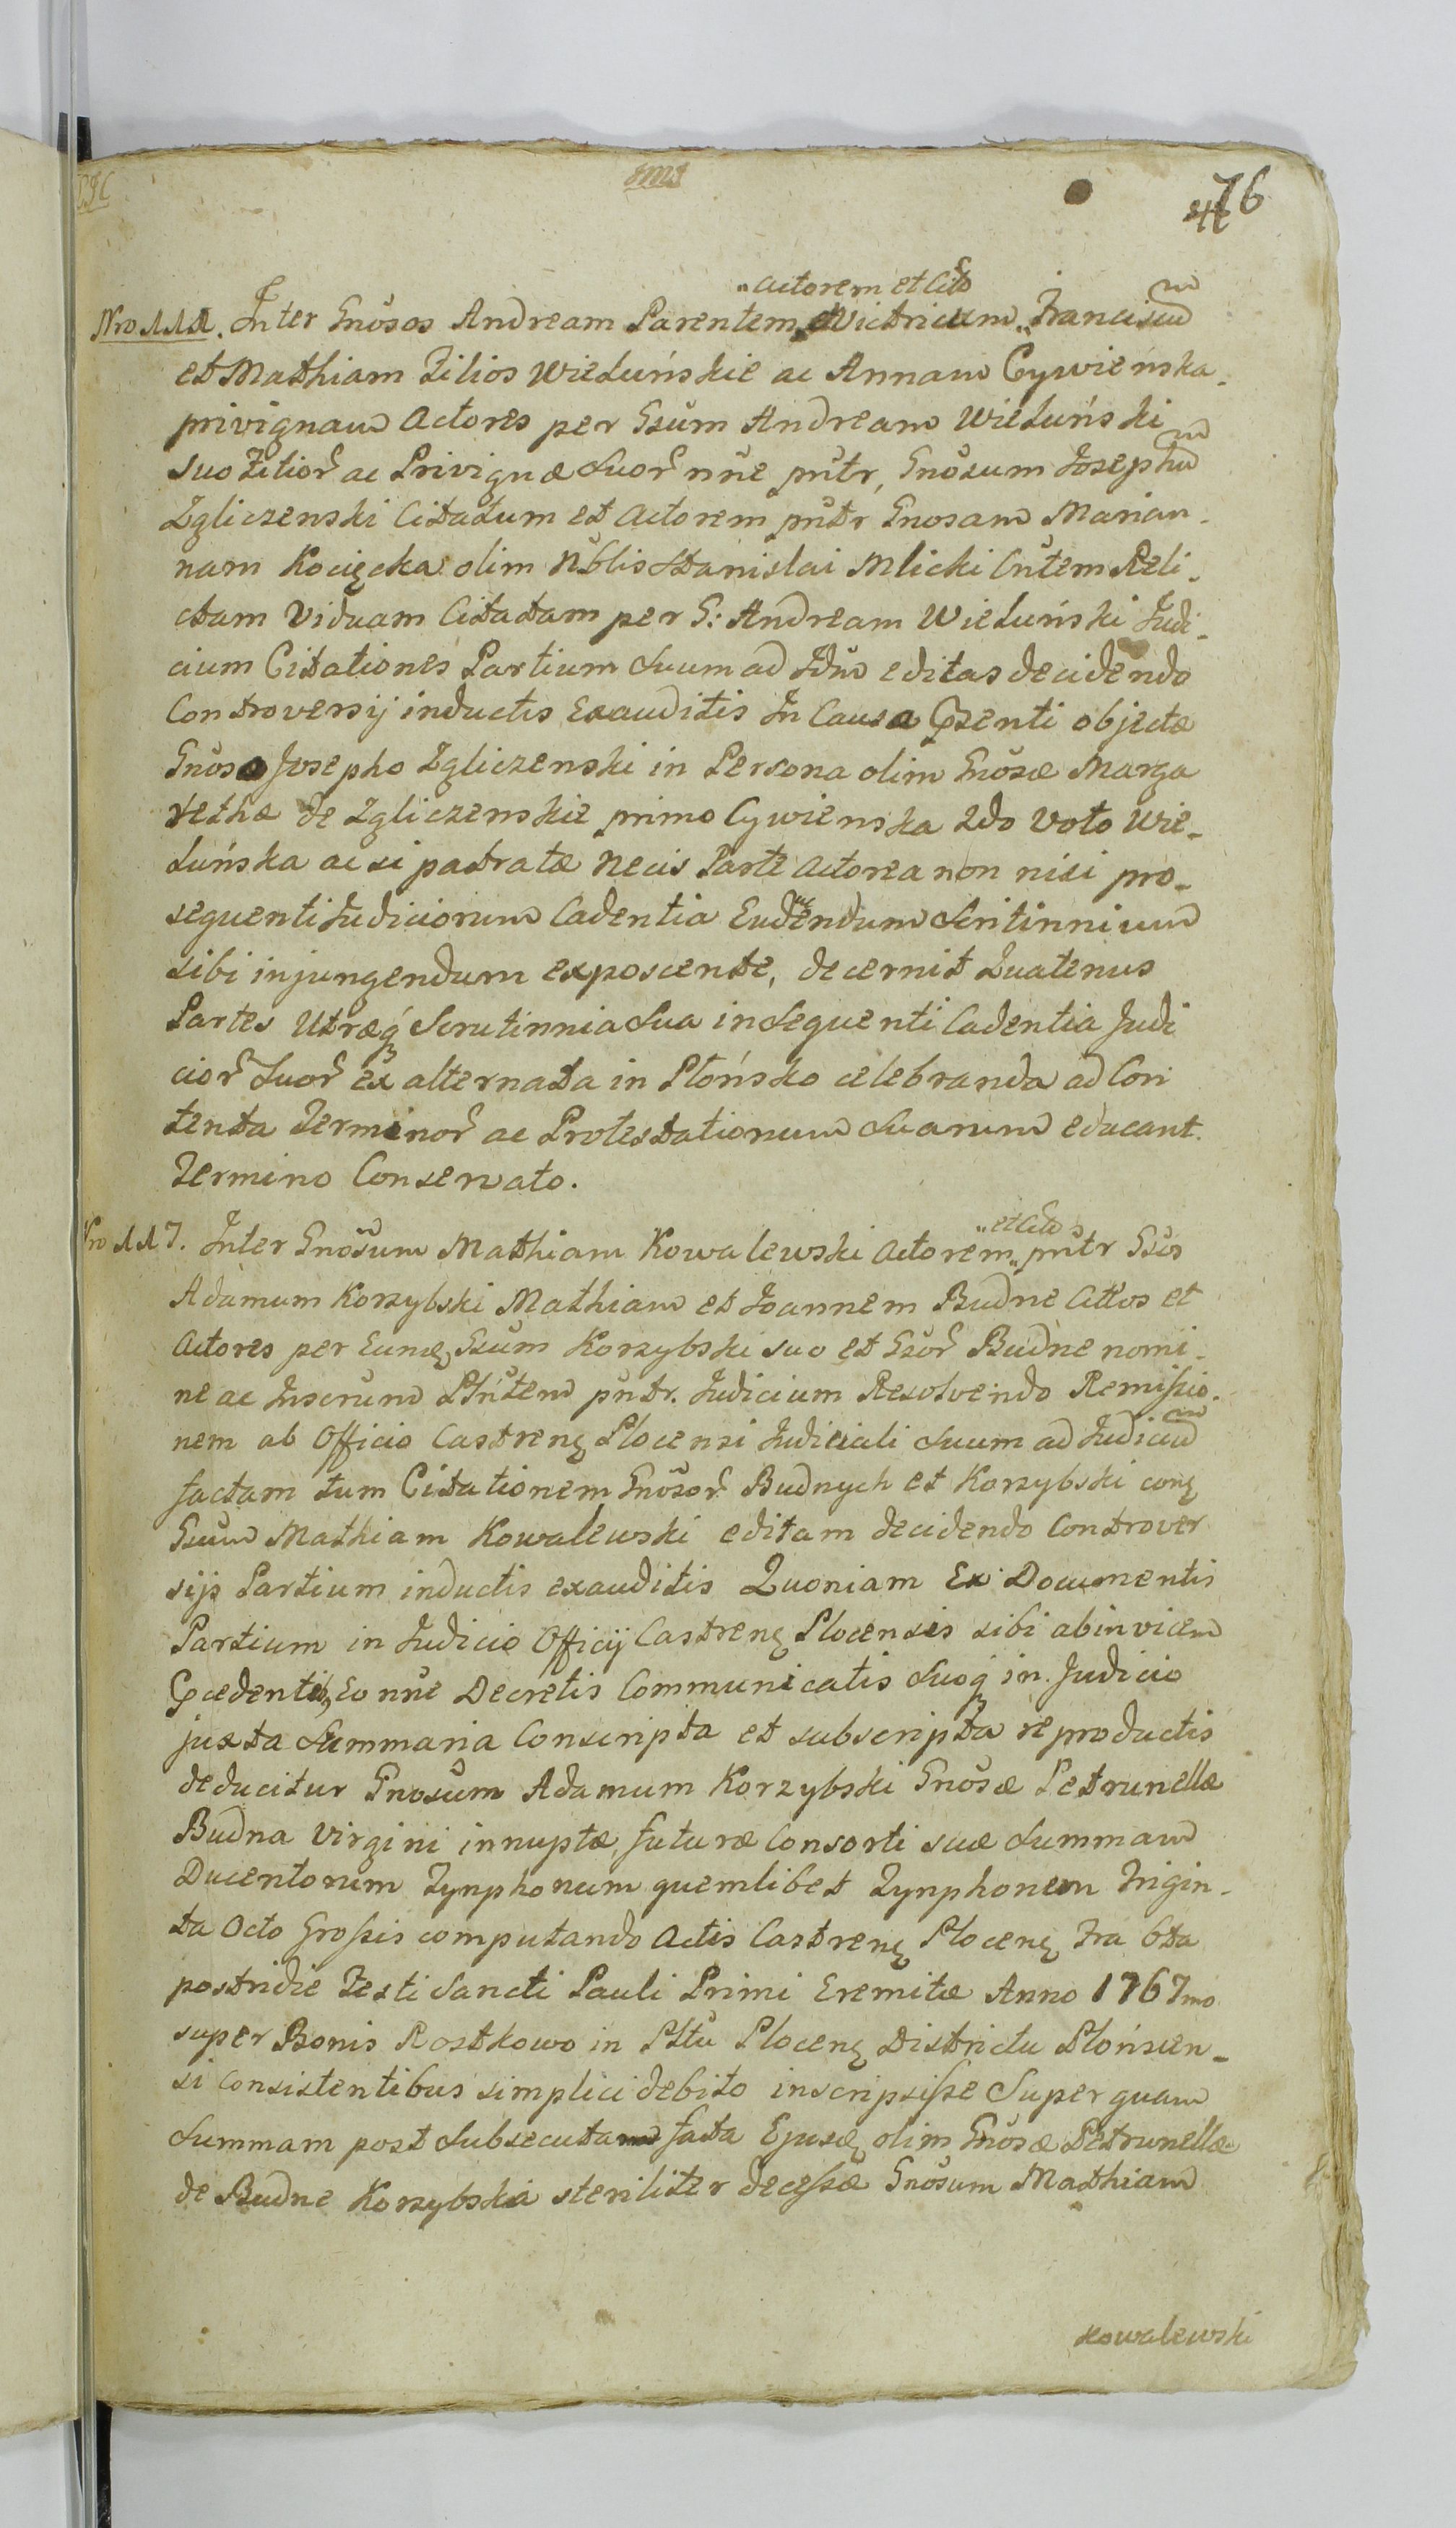 76
„actorem et Citũ
Nro 111. Inter Gnõsos Andream Parentem Victricum „Franciscum
et Mathiam Filios Wieluńskie ac Annam Cywieńska
privignam Actores per Gsũm Andream Wieluński
suo Filior̃ ac Privignæ Suor̃ nñe pñtr, Gnõsum Josephum
Zgliczenski Citatum et Actorem pñtr Gnosam Marian-
nam Kocięcka olim Nb̃lis Stanislai Mlicki Cñtem Reli-
ctam Viduam Citatam per G: Andream Wieluński Judi-
cium Citationes Partium Suum ad Jdm̃ editas decidendo
Controversij inductis Exauditis In Causa Pczenti objectæ
Gnõso Josepho Zgliczenski in Persona olim Gnõsæ Marga
rethæ de Zgliczenskie primo Cywienska 2do Voto Wie-
luńska ac si patratæ Necis Parte Actorea non nisi pro-
sequenti Judiciorum Cadentia Eudendum Scritinnium
sibi injungendum exposcente, decernit Quatenus
Partes Utræq́ Scrutinnia Sua in Sequenti Cadentia Judi
cior̃ Suor̃ ex alternata in Płońsko celebranda ad Con
tenta Terminor̃ ac Protestationum Suarum educant.
Termino Conservato.
„et Citũ
Nro 117. Inter Gnõsum Mathiam Kowalewski Actorem „pñtr Gsũs
Adamum Korzybski Mathiam et Joannem Budne Cittos et
Actores per Eumq Gsũm Korzybski suo et Gsor̃ Budne nomi-
ne ac Inscrum Pñtem pñtr. Judicium Resolvendo Remissio-
nem ab Officio Castrenq Plocensi Judiciali Suum ad Judicium
factam tum Citationem Gnõsor̃ Budnych et Korzybski conq
Gsum Mathiam Kowalewski editam decidendo Controver
sijs Partium inductis exauditis Quoniam Ex Documentis
Partium in Judicio Officij Castrenq Plocensis sibi abinvicem
Pcedenti, Eo nñe Decretis Communicatis Suoq́ in Judicio
juxta Summaria Conscripta et subscripta reproductis
deducitur Gnosum Adamum Korzybski Gnõsæ Petrunellæ
Budna Virgini innuptæ, futuræ Consorti suæ Summam
Ducentorum Tynphonum quemlibet Tynphonem Trigin-
ta Octo Grossis computando Actis Castrenq Plocenq Fra 6ta
postridie Festi Sancti Pauli Primi Eremitæ Anno 1767mo
super Bonis Rostkowo in Pltũ Plocenq Districtu Płońscen-
si Consistentibus simplici debito inscripsisse Super quam
Summam post Subsecuta fata Ejusq olim Gnõsæ Petrunellæ
de Budne Korzybska steriliter decessæ Gnõsum Mathiam
Kowalewski